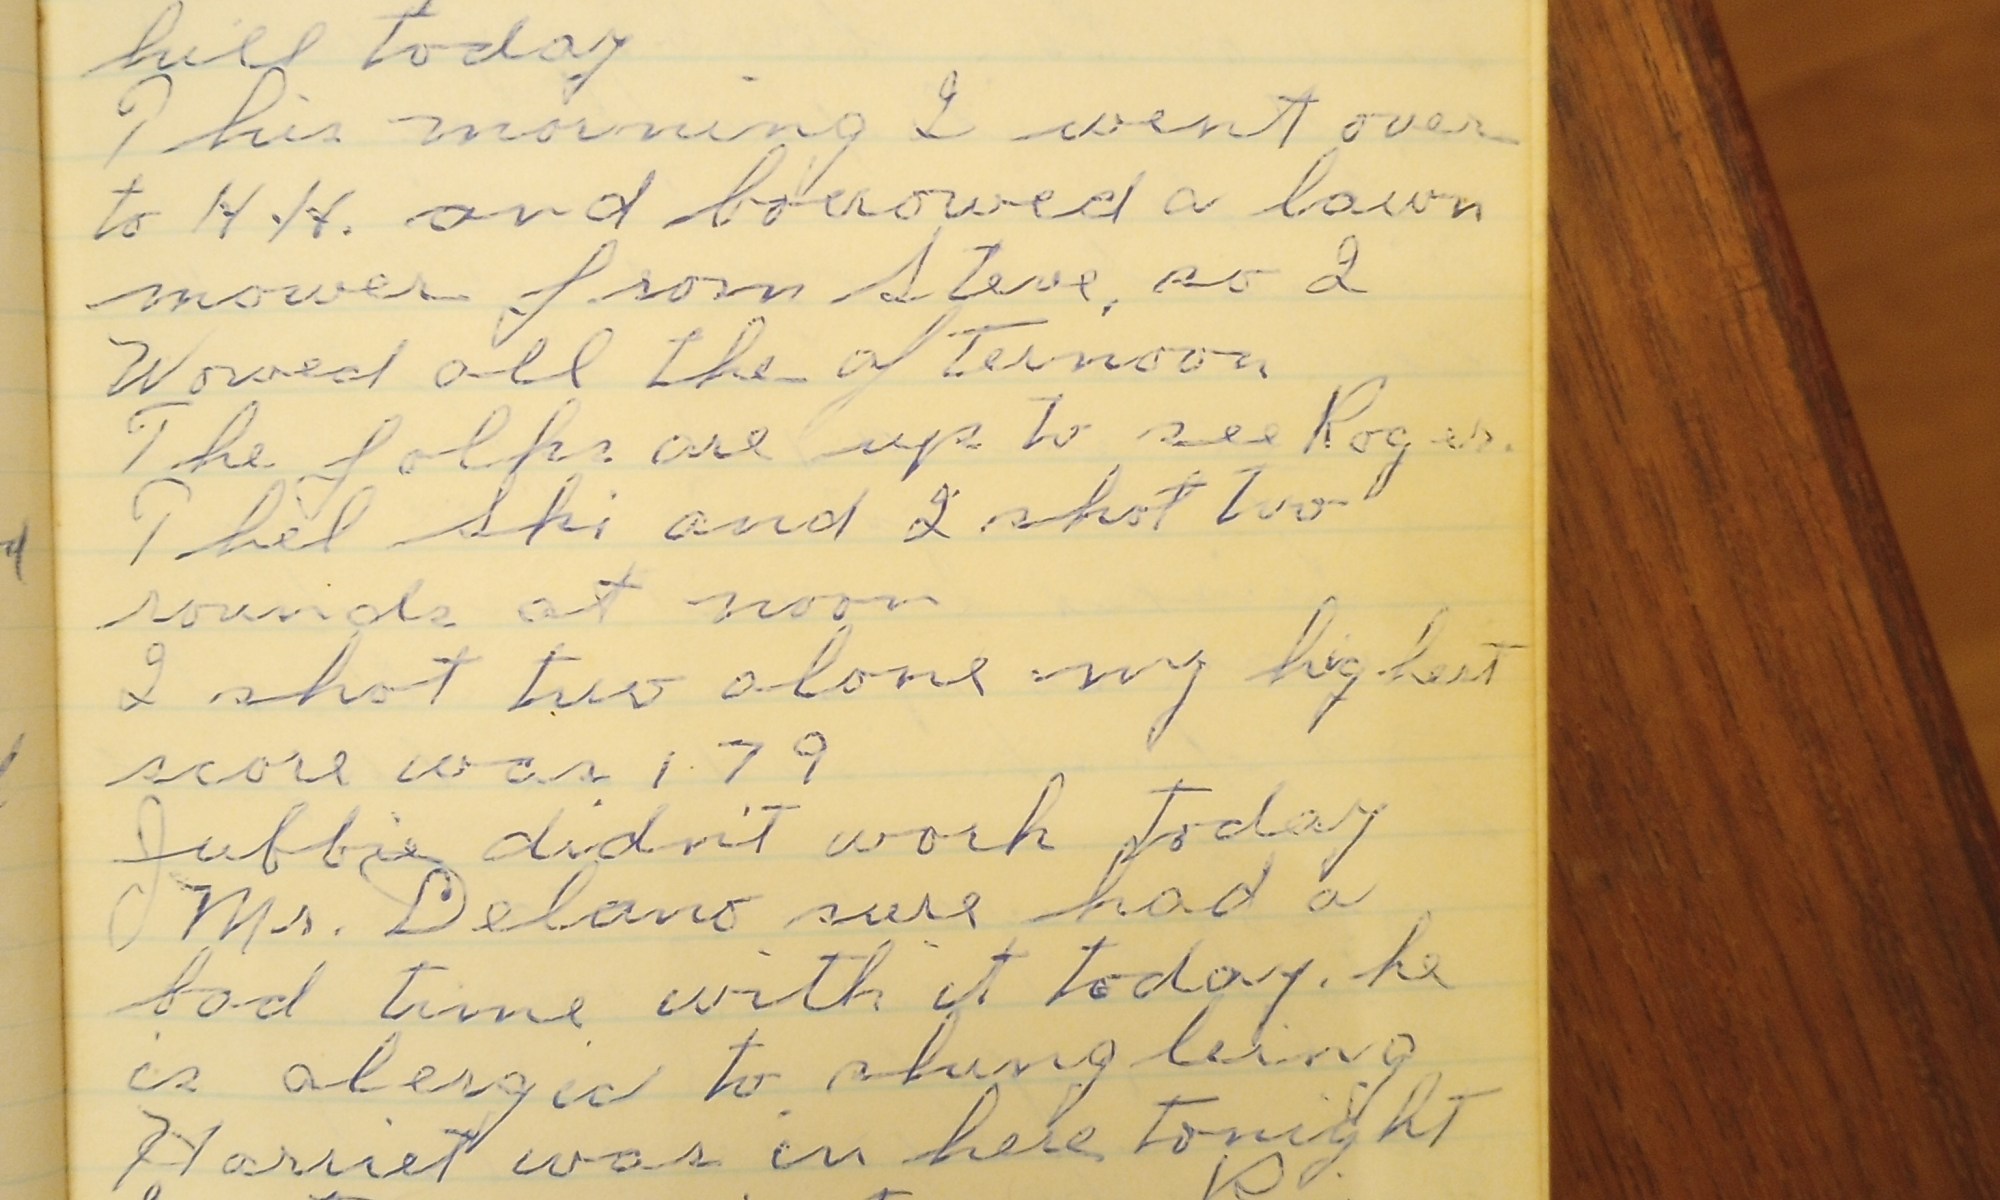 hill today
This morning I went over
to H.H. and borrowed a lawn
mower from Steve, so I
Wowed all the afternoon
The folks are up to see Roger.
Thel Ski and I shot two
rounds at noon
I shot two alone my highest
score was 179
Jubbie didn't work today
Mr. Delano sure had a
bad time with it today. he
is alergic to shungleing
Harriet was in here tonight